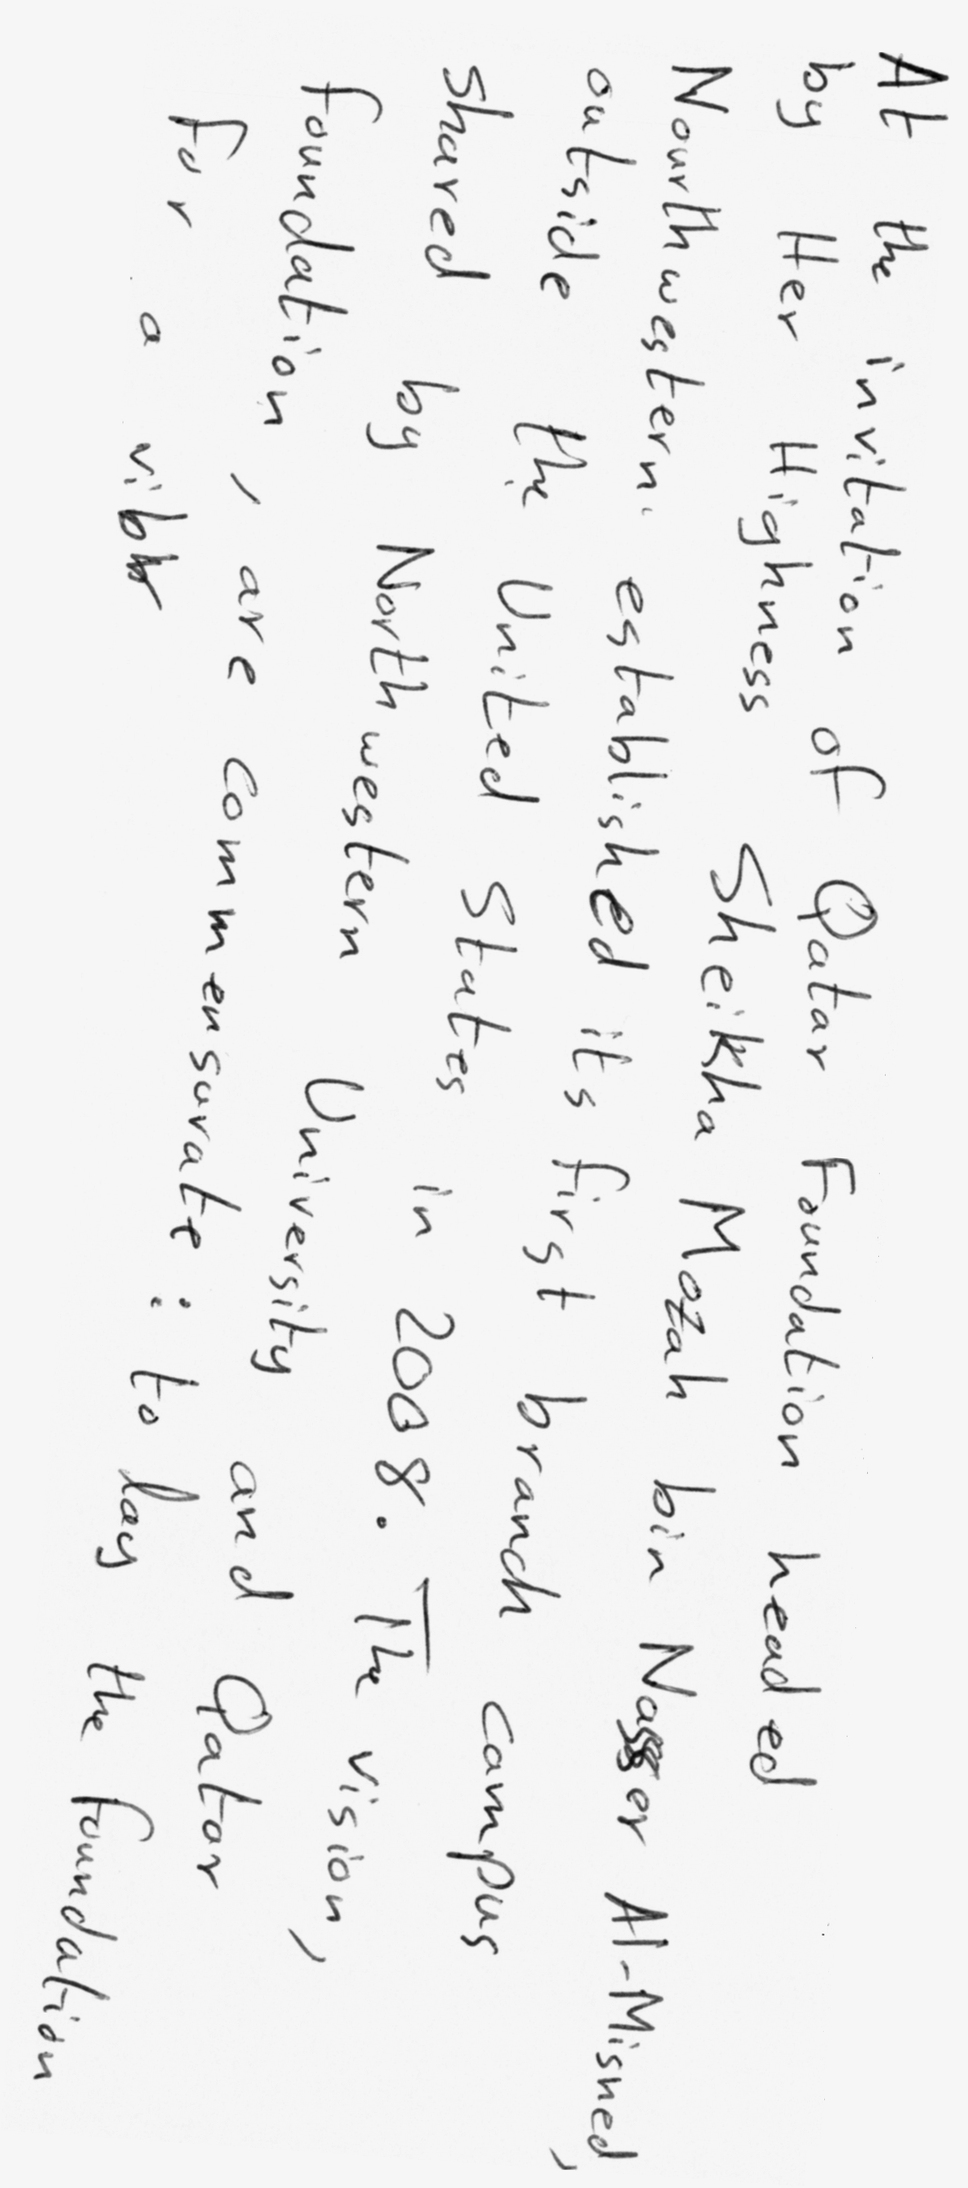 At the invitation of Qatar Foundation headed
by Her Highness Sheikha Mozah bin Nasser Al-Misned,
Nourthwestern. established its first branch campus
outside the United States in 2008. The vision,
shared by Northwestern University and Qatar
foundation, are commensurate: to lay the foundation
for a vibr